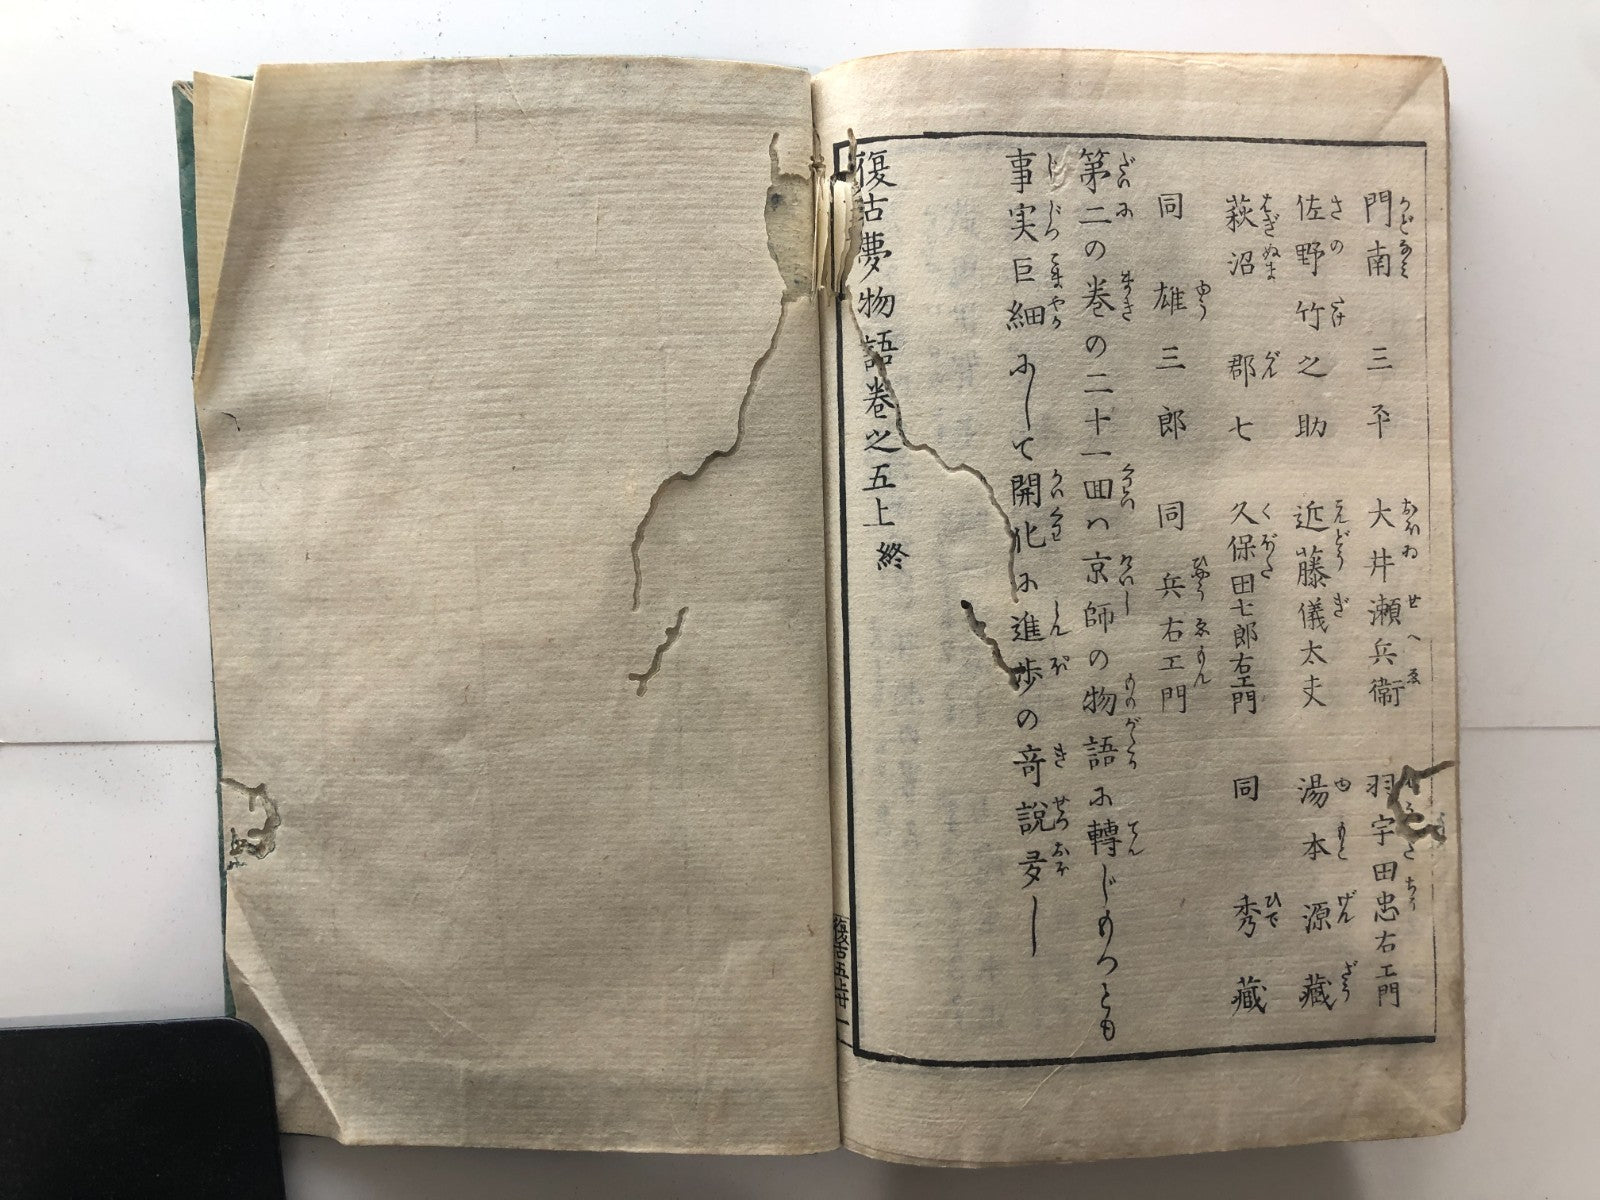 門南三平　大井瀬兵衞　羽宇田忠右エ門
佐野竹之助　近藤儀太夫　湯本源藏
萩沼郡七　久保田七郎右エ門　同秀藏
同雄三郎　同兵右エ門
第二の巻の二十一回ハ京師の物語に轉じけれとも
事実巨細にして開化に進歩の奇説多し
復古夢物語巻之五上終
復古五上廿一